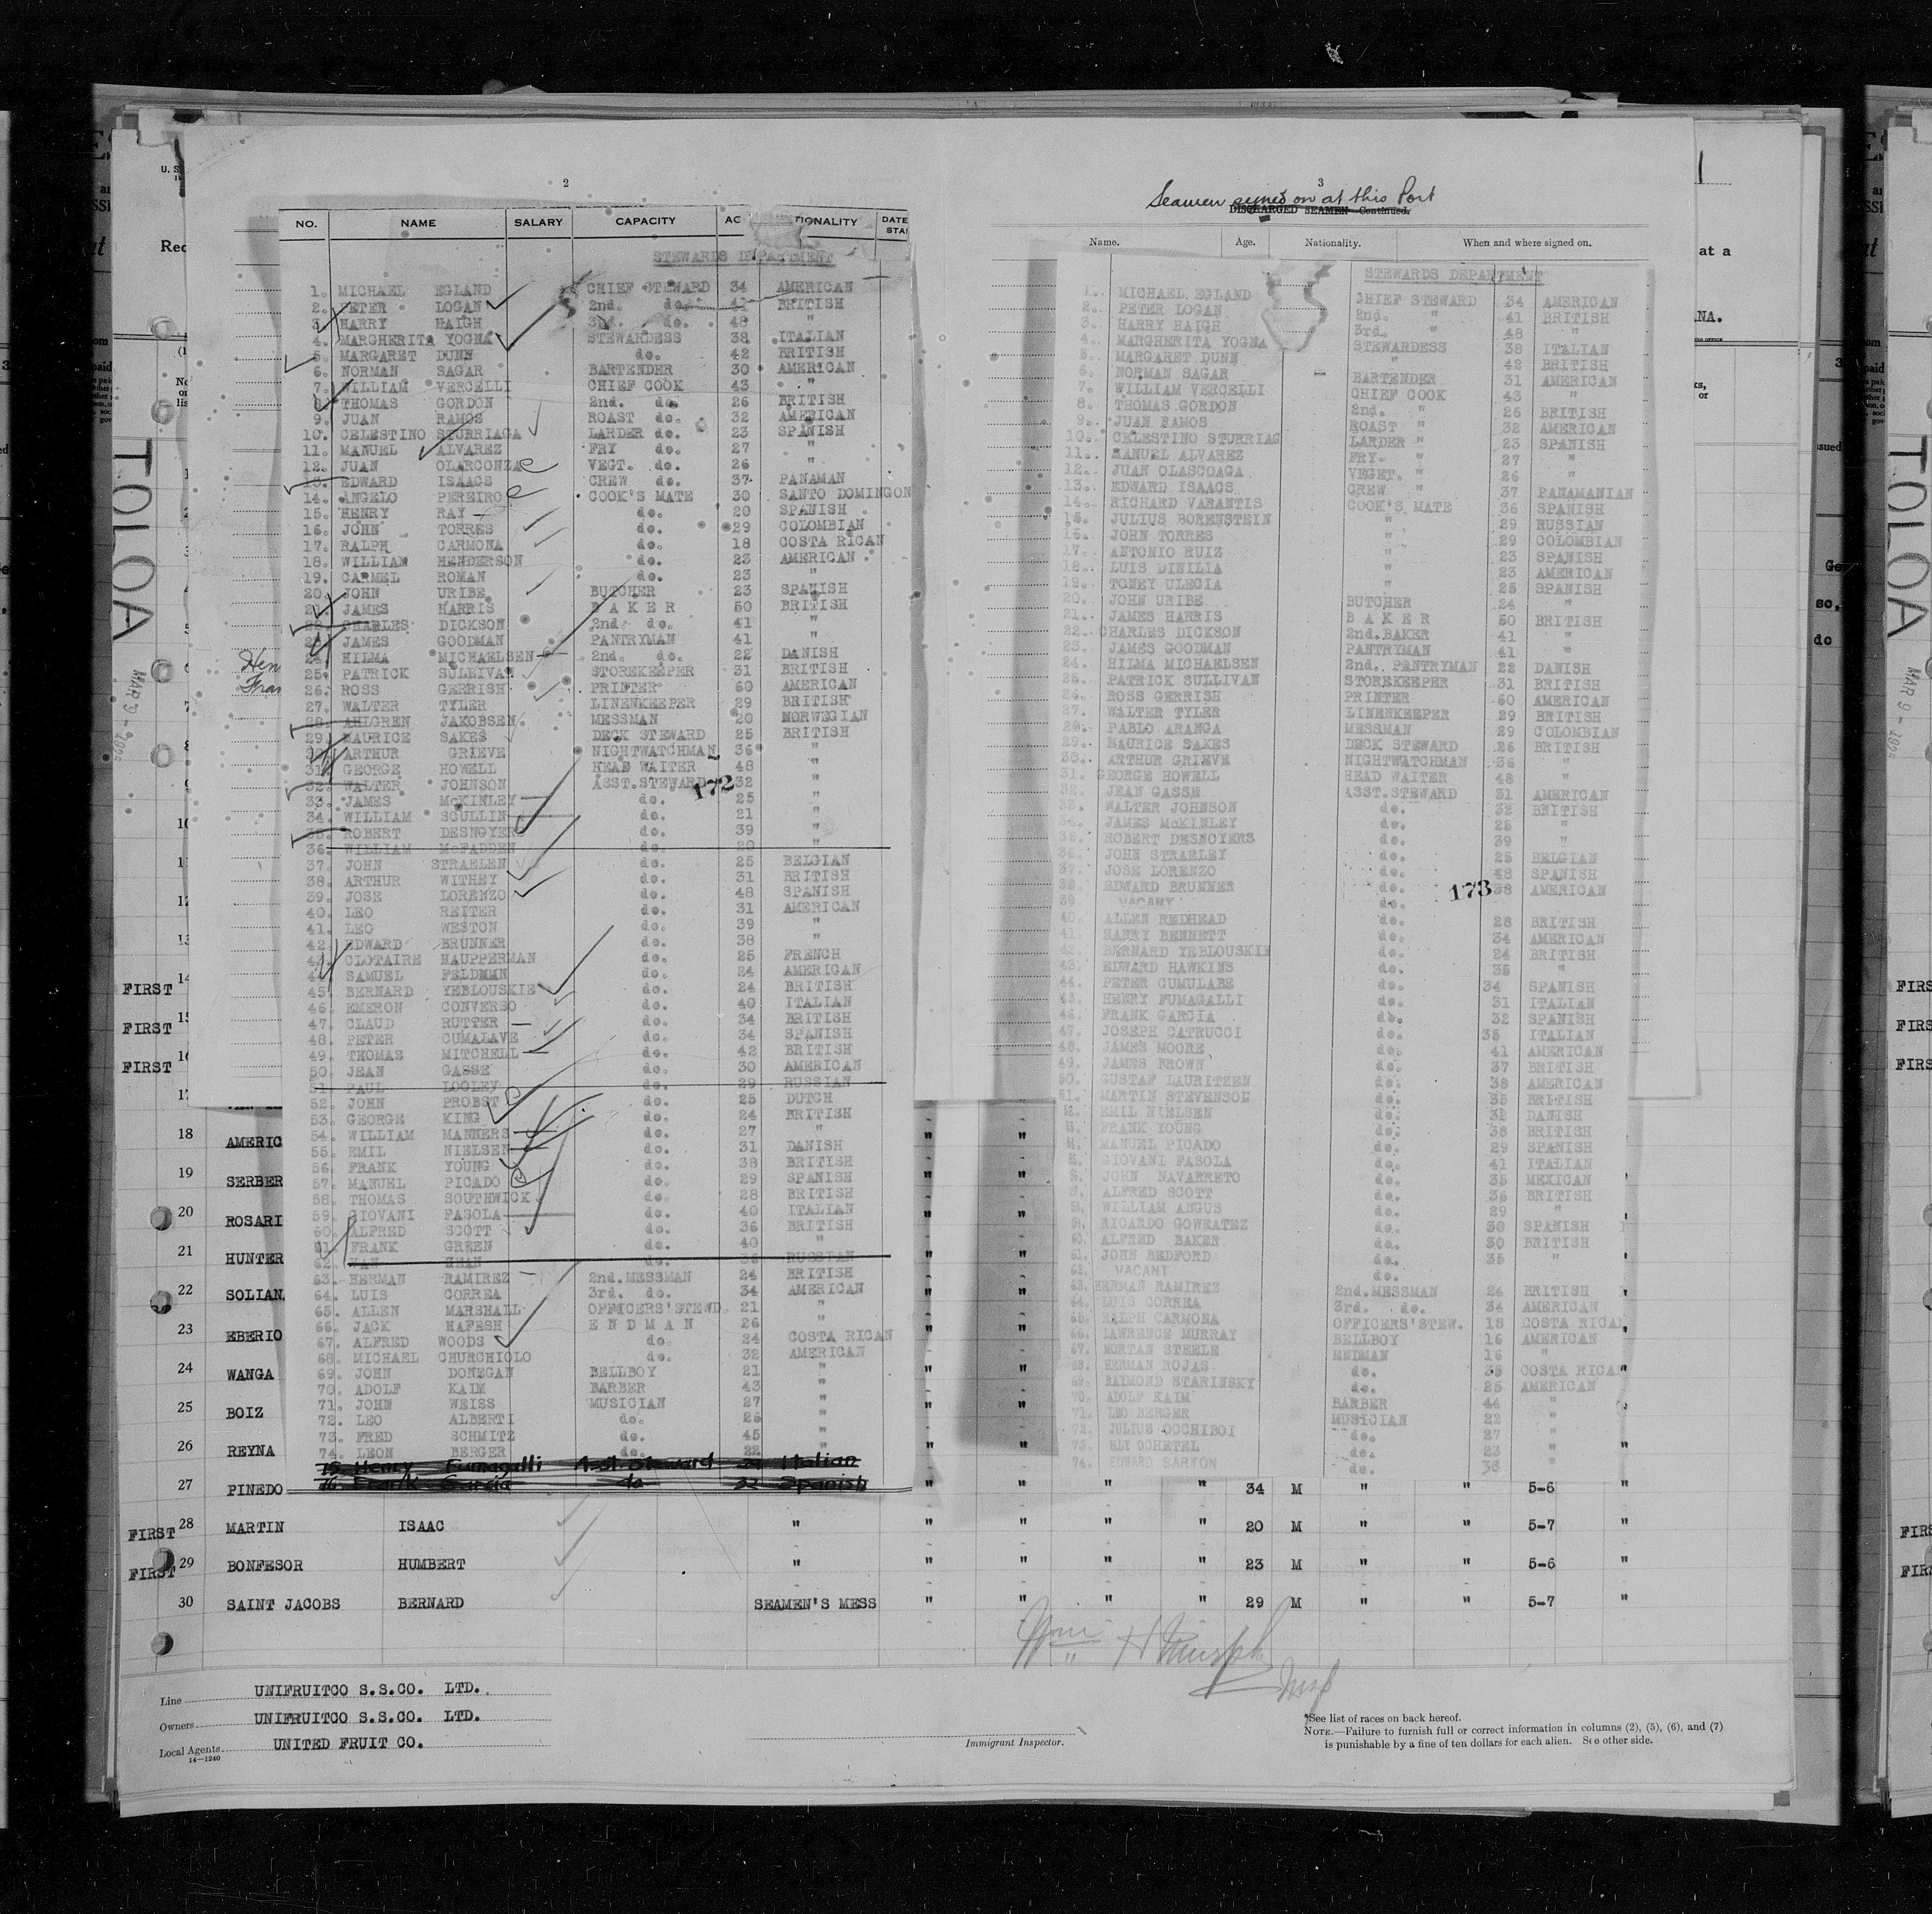 2
NO. NAME SALARY CAPACITY DATE
STEWARDS DEPARTMENT
1. MICHAEL EGLAND CHIEF STEWARD 34 AMERICAN
2. PETER LOGAN 2nd. do. 41 BRITISH
3. HARRY HAIGH 3rd. do. 48 "
4. MARGHERITA YOGNA STEWARDESS 38 ITALIAN
5. MARGARET DUNN do. 42 BRITISH
6. NORMAN SAGAR BARTENDER 30 AMERICAN
7. WILLIAM VERCELLI CHIEF COOK 43 "
8. THOMAS GORDON 2nd. do. 26 BRITISH
9. JUAN RAMOS ROAST do. 32 AMERICAN
10. CELESTINO STURRIAGA LARDER do. 23 SPANISH
11. MANUEL ALVAREZ FRY do. 27 "
12. JUAN OLARGONZA VEGT. do. 26 "
13. EDWARD ISAACS CREW do. 37 PANAMAN
14. ANGELO PEREIRO COOK'S MATE 30 SANTO DOMINGON
15. HENRY RAY do. 20 SPANISH
16. JOHN TORRES do. 29 COLOMBIAN
17. RALPH CARMONA do. 18 COSTA RICAN
18. WILLIAM HENDERSON do. 23 AMERICAN
19. CARMEL ROMAN do. 23 "
20. JOHN URIBE BUTCHER 23 SPANISH
21. JAMES HARRIS B A K E R 50 BRITISH
22. CHARLES DICKSON 2nd. do. 41 "
23. JAMES GOODMAN PANTRYMAN 41 "
24. HILMA MICHAELSEN 2nd. do. 22 DANISH
25. PATRICK SULLIVAN STOREKEEPER 31 BRITISH
26. ROSS GERRISH PRINTER 60 AMERICAN
27. WALTER TYLER LINENKEEPER 29 BRITISH
28. AHLGREN JAKOBSEN MESSMAN 20 NORWEGIAN
29. MAURICE SAKES DECK STEWARD 25 BRITISH
30. ARTHUR GRIEVE NIGHTWATCHMAN 36 "
31. GEORGE HOWELL HEAD WAITER 48 "
32. WALTER JOHNSON ASST.STEWARD 32 "
172
33. JAMES McKINLEY do. 25 "
34. WILLIAM SCULLIN do. 21 "
35. ROBERT DESNOYERS do. 39 "
36. WILLIAM McFADDEN do. 20 "
37. JOHN STRAELEN do. 25 BELGIAN
38. ARTHUR WITHEY do. 31 BRITISH
39. JOSE LORENZO do. 48 SPANISH
40. LEO REITER do. 31 AMERICAN
41. LEO WESTON do. 39 "
42. EDWARD BRUNNER do. 38 "
43. CLOTAIRE HAUPPERMAN do. 25 FRENCH
44. SAMUEL FELDMAN do. 24 AMERICAN
45. BERNARD YEBLOUSKIE do. 24 BRITISH
46. EMERON CONVERSO do. 40 ITALIAN
47. CLAUD RUTTER do. 34 BRITISH
48. PETER CUMALAVE do. 34 SPANISH
49. THOMAS MITCHELL do. 42 BRITISH
50. JEAN GASSE do. 30 AMERICAN
51. PAUL LOOLEY do. 29 RUSSIAN
52. JOHN PROBST do. 25 DUTCH
53. GEORGE KING do. 24 BRITISH
54. WILLIAM MANNERS do. 27 "
55. EMIL NIELSEN do. 31 DANISH
56. FRANK YOUNG do. 38 BRITISH
57. MANUEL PICADO do. 29 SPANISH
58. THOMAS SOUTHWICK do. 28 BRITISH
59. GIOVANI FASOLA do. 40 ITALIAN
60. ALFRED SCOTT do. 36 BRITISH
61. FRANK GREEN do. 40 "
62. do. RUSSIAN
63. HERMAN RAMIREZ 2nd.MESSMAN 24 BRITISH
64. LUIS CORREA 3rd. do. 34 AMERICAN
65. ALLEN MARSHALL OFFICERS'STEWD. 21 "
66. JACK HAFESH E N D M A N 26 "
67. ALFRED WOODS do. 24 COSTA RICAN
68. MICHAEL CHURCHIOLO do. 32 AMERICAN
69. JOHN DONEGAN BELLBOY 21 "
70. ADOLF KAIM BARBER 43 "
71. JOHN WEISS MUSICIAN 27 "
72. LEO ALBERTI do. 25 "
73. FRED SCHMITZ do. 45 "
74. LEON BERGER do. 22 "
75. Henry Fumagalli Asst. Steward 31 Italian
76. Frank Garcia do 32 Spanish
3
Seamen signed on at this Port
DISCHARGED SEAMEN—Continued.
Name. Age. Nationality. When and where signed on.
STEWARDS DEPARTMENT
1. MICHAEL EGLAND CHIEF STEWARD 34 AMERICAN
2. PETER LOGAN 2nd. " 41 BRITISH
3. HARRY HAIGH 3rd. " 48 "
4. MARGHERITA YOGNA STEWARDESS 38 ITALIAN
5. MARGARET DUNN " 42 BRITISH
6. NORMAN SAGAR BARTENDER 31 AMERICAN
7. WILLIAM VERCELLI CHIEF COOK 43 "
8. THOMAS GORDON 2nd. " 26 BRITISH
9. JUAN RAMOS ROAST " 32 AMERICAN
10. CELESTINO STURRIAG LARDER " 23 SPANISH
11. MANUEL ALVAREZ FRY " 27 "
12. JUAN OLASCOAGA VEGET. " 26 "
13. EDWARD ISAACS CREW " 37 PANAMANIAN
14. RICHARD VARANTIS COOK'S MATE 36 SPANISH
15. JULIUS BORENSTEIN " 29 RUSSIAN
16. JOHN TORRES " 29 COLOMBIAN
17. ANTONIO RUIZ " 23 SPANISH
18. LUIS DINILIA " 23 AMERICAN
19. TONEY ULECIA " 25 SPANISH
20. JOHN URIBE BUTCHER 24 "
21. JAMES HARRIS B A K E R 50 BRITISH
22. CHARLES DICKSON 2nd.BAKER 41 "
23. JAMES GOODMAN PANTRYMAN 41 "
24. HILMA MICHAELSEN 2nd. PANTRYMAN 22 DANISH
25. PATRICK SULLIVAN STOREKEEPER 31 BRITISH
26. ROSS GERRISH PRINTER 60 AMERICAN
27. WALTER TYLER LINENKEEPER 29 BRITISH
28. PABLO ARANGA MESSMAN 29 COLOMBIAN
29. MAURICE SAKES DECK STEWARD 26 BRITISH
30. ARTHUR GRIEVE NIGHTWATCHMAN 36 "
31. GEORGE HOWELL HEAD WAITER 48 "
32. JEAN GASSE ASST.STEWARD 31 AMERICAN
33. WALTER JOHNSON do. 32 BRITISH
34. JAMES McKINLEY do. 25 "
35. ROBERT DESNOYERS do. 39 "
36. JOHN STRAELEY do. 25 BELGIAN
37. JOSE LORENZO do. 48 SPANISH
38. EDWARD BRUNNER do. 38 AMERICAN
173
39. VACANT do.
40. ALLEN REDHEAD do. 28 BRITISH
41. HARRY BENNETT do. 34 AMERICAN
42. BERNARD YEBLOUSKIE do. 24 BRITISH
43. EDWARD HAWKINS do. 35 "
44. PETER CUMULABE do. 34 SPANISH
45. HENRY FUMAGALLI do. 31 ITALIAN
46. FRANK GARCIA do. 32 SPANISH
47. JOSEPH CATRUCCI do. 35 ITALIAN
48. JAMES MOORE do. 41 AMERICAN
49. JAMES BROWN do. 37 BRITISH
50. GUSTAF LAURITZEN do. 38 AMERICAN
51. MARTIN STEVENSON do. 35 BRITISH
52. EMIL NIELSEN do. 32 DANISH
53. FRANK YOUNG do. 38 BRITISH
54. MANUEL PICADO do. 29 SPANISH
55. GIOVANI FASOLA do. 41 ITALIAN
56. JOHN NAVARRETO do. 35 MEXICAN
57. ALFRED SCOTT do. 36 BRITISH
58. WILLIAM ANGUS do. 29 "
59. RICARDO GOWRATEZ do. 30 SPANISH
60. ALFRED BAKER do. 30 BRITISH
61. JOHN BEDFORD do. 35 "
62. VACANT do.
63. HERMAN RAMIREZ 2nd.MESSMAN 24 BRITISH
64. LUIS CORREA 3rd. do. 34 AMERICAN
65. RALPH CARMONA OFFICERS'STEW. 18 COSTA RICAN
66. LAWRENCE MURRAY BELLBOY 16 AMERICAN
67. MORTAN STEELE ENDMAN 16 "
68. HERMAN ROJAS do. 35 COSTA RICA
69. RAYMOND STARINSKY do. 25 AMERICAN
70. ADOLF KAIM BARBER 44 "
71. LEO BERGER MUSICIAN 22 "
72. JULIUS OCCHIBOI do. 27 "
73. ELY OCHETEL do. 23 "
74. EDWARD SARTON do. 38 "
TOLOA
MAR 9 -
FIRST 14
FIRST 15
FIRST 16
17
18 AMERIC
19 SERBER
20 ROSARI
21 HUNTER
22 SOLIAN
23 EBERIO
24 WANGA
25 BOIZ
26 REYNA
27 PINEDO " " " " 34 M " " 5-6 "
FIRST 28 MARTIN ISAAC " " " " " 20 M " " 5-7 "
FIRST 29 BONFESOR HUMBERT " " " " " 23 M " " 5-6 "
30 SAINT JACOBS BERNARD SEAMEN'S MESS " " " " 29 M " " 5-7 "
Line UNIFRUITCO S.S.CO. LTD.
Owners UNIFRUITCO S.S.CO. LTD.
Local Agents UNITED FRUIT CO.
14—1240
Immigrant Inspector.
*See list of races on back hereof.
NOTE.—Failure to furnish full or correct information in columns (2), (5), (6), and (7)
is punishable by a fine of ten dollars for each alien. See other side.
TOLOA